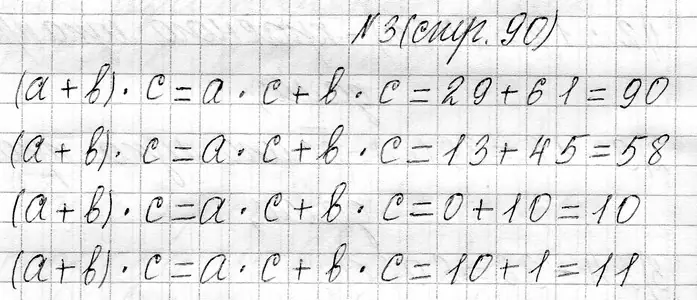 №3 (стр. 90)
(a + b) · c = a · c + b · c = 29 + 61 = 90
(a + b) · c = a · c + b · c = 13 + 45 = 58
(a + b) · c = a · c + b · c = 0 + 10 = 10
(a + b) · c = a · c + b · c = 10 + 1 = 11